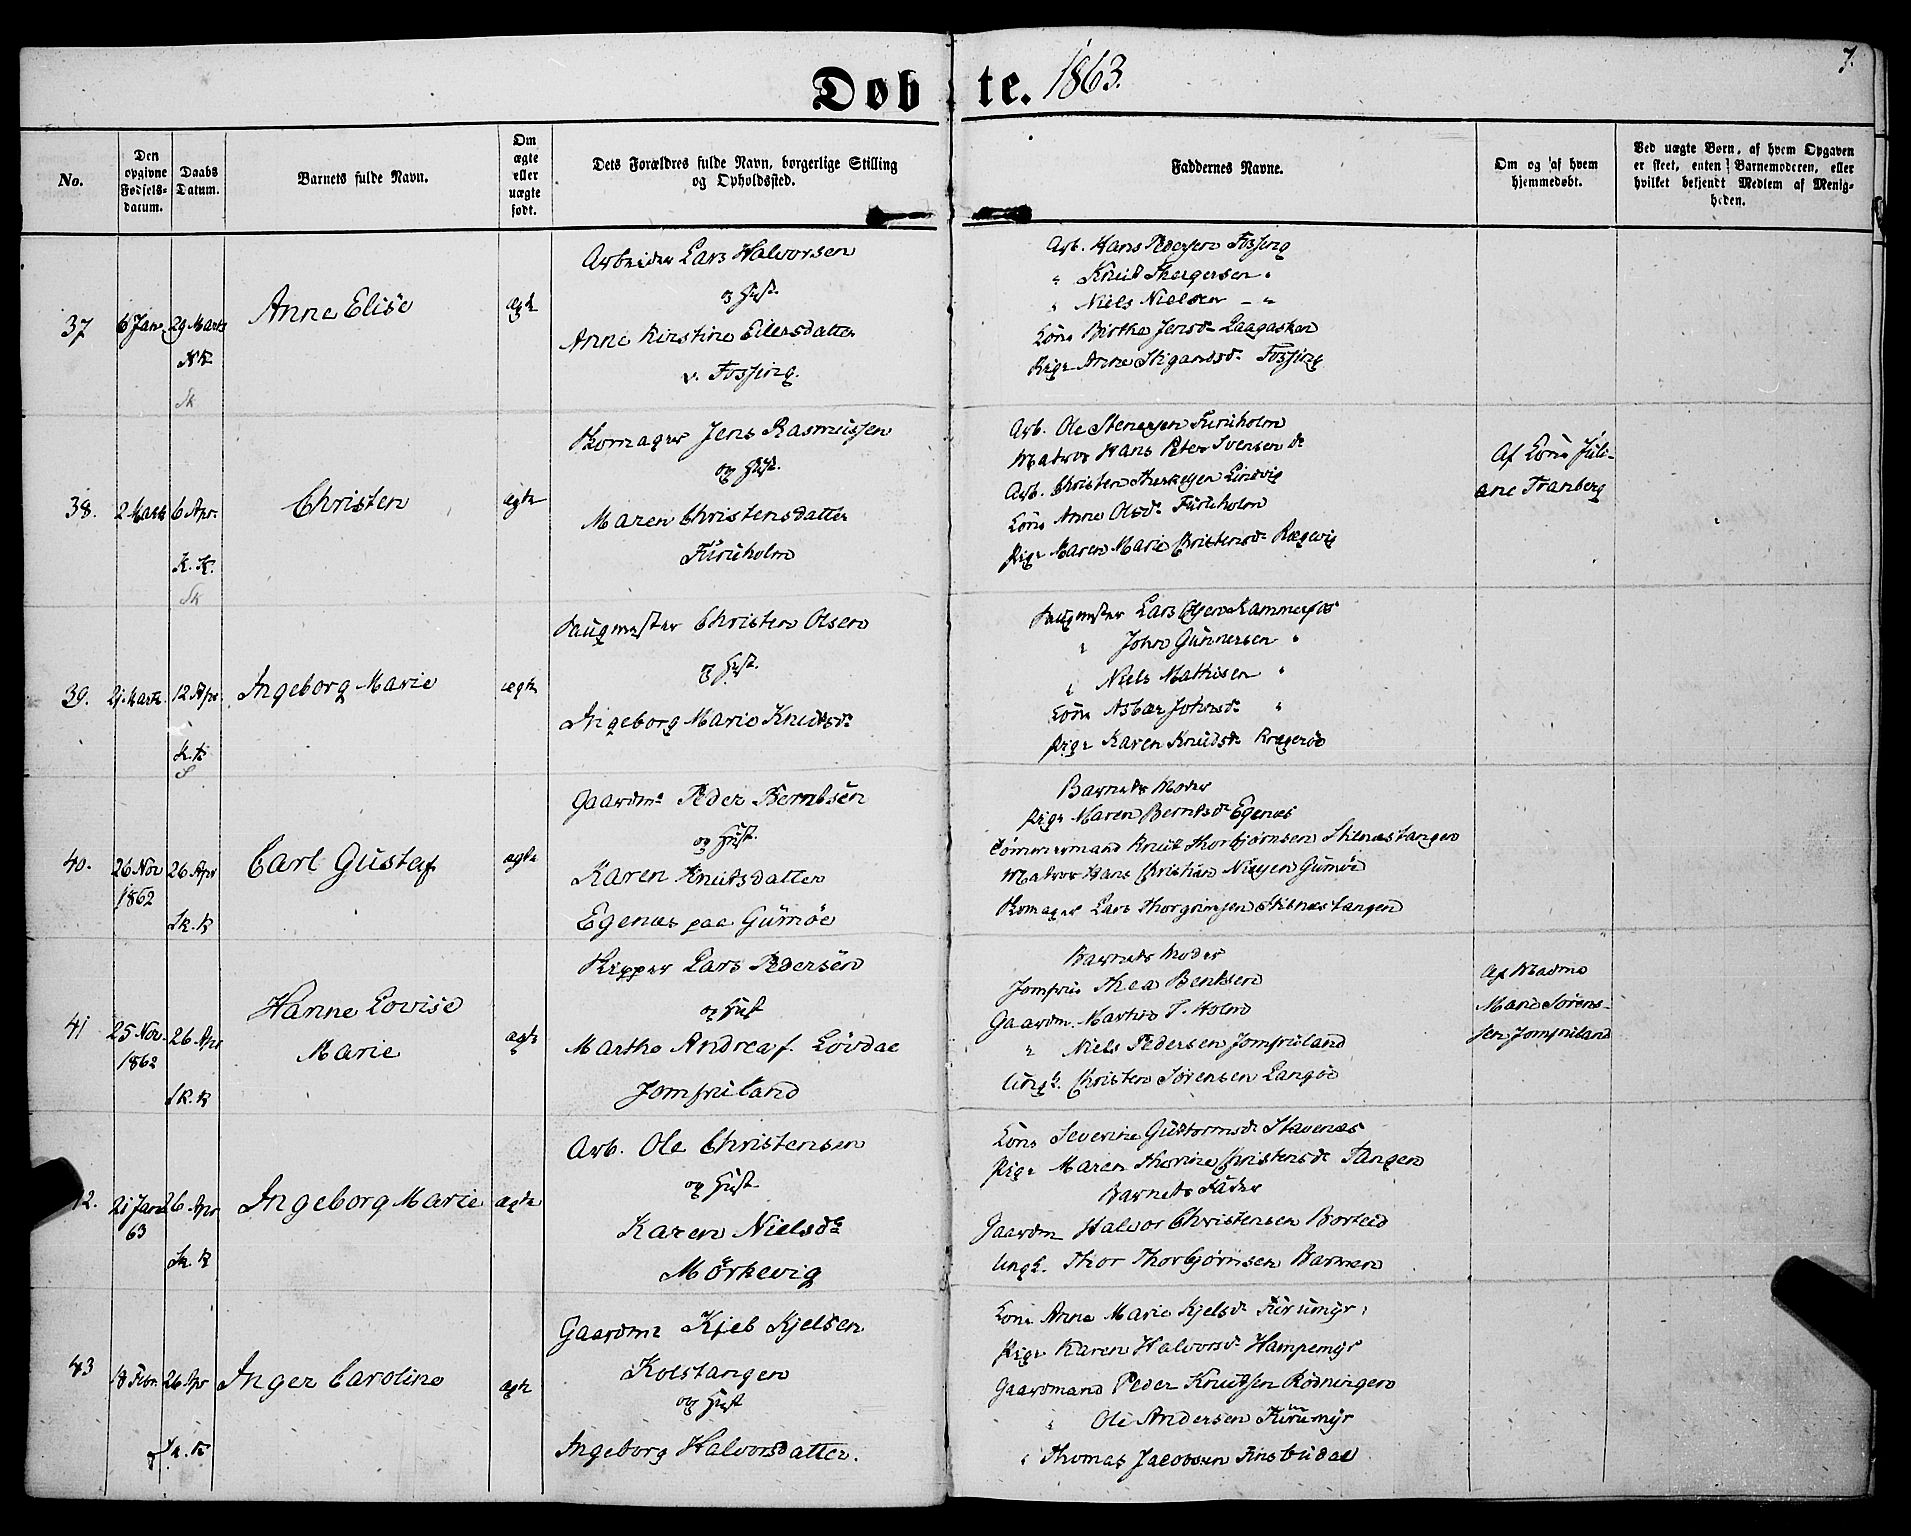 Døbte. 1863.
7.
No.
Den opgivne Fødsels-datum.
Daabs Datum.
Barnets fulde Navn.
Om ægte eller uægte født.
Dets Forældres fulde Navn, borgerlige Stilling og Opholdssted.
Faddernes Navne.
Om og af hvem hjemmedøbt.
Ved uægte Børn, af hvem Opgaven er skeet, enten Barnemoderen, eller hvilket bekjendt Medlem af Menigheden.
37
6 Jan.
29 Marts
Sk
Anne Elise
ægte
Arbeider Lars Halvorsen
og Hust.
Anne Kirstine Eilersdatter
v. Fossing.
Arb. Hans Pedersen Fossing
" Knud Thergersen "
" Niels Nielsen - "
Kone Birthe Jensd. Laagasken
Pige Anne Stigandsd. Fossing
38.
2 Marts
6 Apr.
K. K.
Sk
Christen
ægte
Skomager Jens Rasmussen
og Hust.
Maren Christensdatter
Furuholm
Arb. Ole Stenersen Furuholm
Matros Hans Peter Svensen do
Arb. Christen Therkelsen Lindvig
Kone Anne Olsd. Furuholm
Pige Maren Marie Christensd. Rægevig
Af Kone Juli-
ane Tranberg
39.
21. Marts
12 Apr
K. K.
S
Ingeborg Marie
ægte
Saugmester Christen Olsen
og Hust.
Ingeborg Marie Knudsd.
Saugmester Lars Olsen Kammerfos
" John Gunnersen "
" Niels Mathisen "
Kone Asbær Johnsd. "
Pige Karen Knudsd. Krogerød
40.
26 Nov
1862
26 Apr
Sk. K
Carl Gustaf
ægte
Gaardm. Peder Berntsen
og Hust.
Karen Knutsdatter
Egenæs paa Gumøe
Barnets Moder
Pige Maren Berntsd. Egenæs
Tømmermand Knut Thorbjørnsen Stilnæstangen
Matros Hans Christian Nilsen Gumøe
Skomager Lars Thorgrimsen Stilnæstangen
41
25 Nov.
1862
26 Apr
Sk. K
Hanne Lovise
Marie
ægte
Skipper Lars Pedersen
og Hust
Marthe Andrea f. Løvdal
Jomfruland
Barnets Moder
Jomfru Thea Bentsen
Gaardm. Martin T. Holm
" Niels Pedersen Jomfruland
Ungk. Christen Sørensen Langøe
Af Madme
Marie Søren-
sen Jomfruland
42.
21 Janr
63
26 Apr
Sk. K
Ingeborg Marie
ægte
Arb. Ole Christensen
og Hust.
Karen Nielsdr
Mörkevig
Kone Severine Guttormsd. Stavenæs
Pige Maren Thorine Christensd. Tangen
Barnets Fader
Gaardm Halvor Christensen Borteid
Ungk. Thor Thorbjørnsen Barmen
43
18 Febr.
26 Apr
Sk. K
Inger Caroline
ægte
Gaardmr Kjel Kjelsen
Kolstangen
og Hust
Ingeborg Halvorsdatter.
Kone Anne Marie Kjelsd. Furumyr
Pige Karen Halvorsd. Hampemyr
Gaardmand Peder Knudsen Rødningen
" Ole Andersen Furumyr
" Thomas Jacobsen Finsbudal